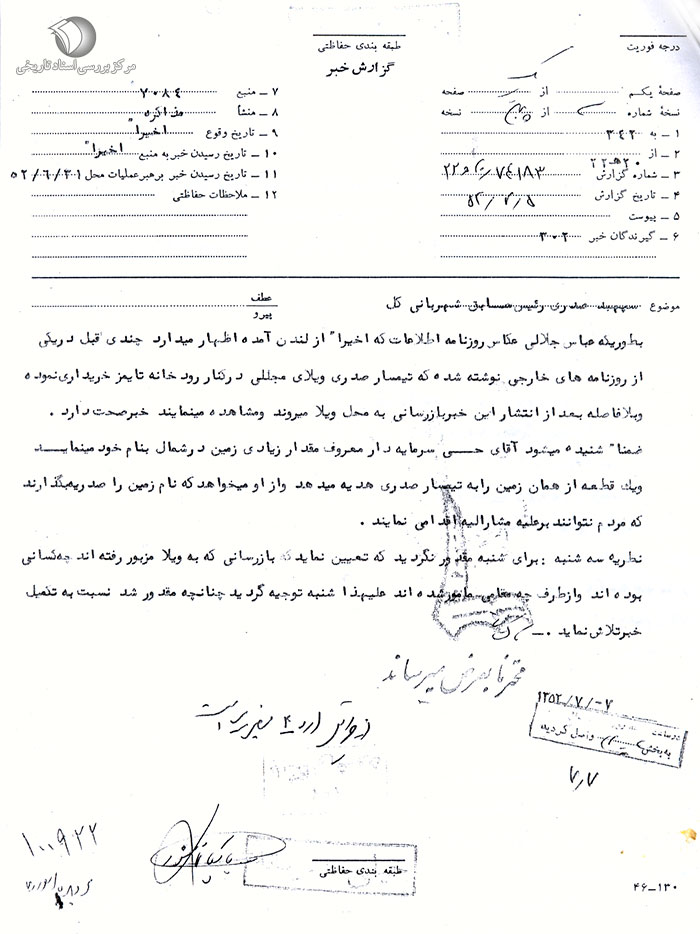 مرکز بررسی اسناد تاریخی
طبقه بندی حفاظتی
درجه فوریت
گزارش خبر
صفحهٔ یکم از یک صفحه
نسخهٔ شماره از پنج نسخه
۱ ـ به ۳۴۲
۲ ـ از ۲۰هـ۲۲
۳ ـ شماره گزارش
۴ ـ تاریخ گزارش ۵۲/۷/۵
۵ ـ پیوست
۶ ـ گیرندگان خبر ۳۰۲
۷ ـ منبع ۷۰۸۴
۸ ـ منشأ مذاکره
۹ ـ تاریخ وقوع اخیرا"
۱۰ ـ تاریخ رسیدن خبر به منبع اخیرا"
۱۱ ـ تاریخ رسیدن خبر برهبر عملیات محل ۵۲/۶/۳۱
۱۲ ـ ملاحظات حفاظتی
موضوع سپهبد صدری رئیس سابق شهربانی کل
عطف
پیرو
بطوریکه عباس جلالی عکاس روزنامه اطلاعات که اخیرا" از لندن آمده اظهار میدارد چندی قبل دریکی
از روزنامه های خارجی نوشته شده که تیمسار صدری ویلای مجللی درکنار رودخانه تایمز خریداری نموده
وبلافاصله بعد از انتشار این خبربازرسانی به محل ویلا میروند ومشاهده مینمایند خبرصحت دارد .
ضمنا" شنیده میشود آقای حسی سرمایه دار معروف مقدار زیادی زمین درشمال بنام خود مینماید
ویك قطعه از همان زمین رابه تیمسار صدری هدیه میدهد واز او میخواهد که نام زمین را صدریه‌بگذارند
که مردم نتوانند برعلیه مشارالیه اقدامی نمایند .
نظریه سه شنبه : برای شنبه مقدور نگردید که تعیین نماید که بازرسانی که به ویلا مزبور رفته اند چه‌کسانی
بوده اند وازطرف چه مقامی مامور شده اند علیهذا شنبه توجیه گردید چنانچه مقدور شد نسبت به تکمیل
خبرتلاش نماید .
محترما بعرض میرساند
۱۳۵۲/۷/-۷
درساعت
به‌بخش واصل گردید
۷/۷
۱۰۰۹۲۲
طبقه بندی حفاظتی
۴۶-۱۳۰